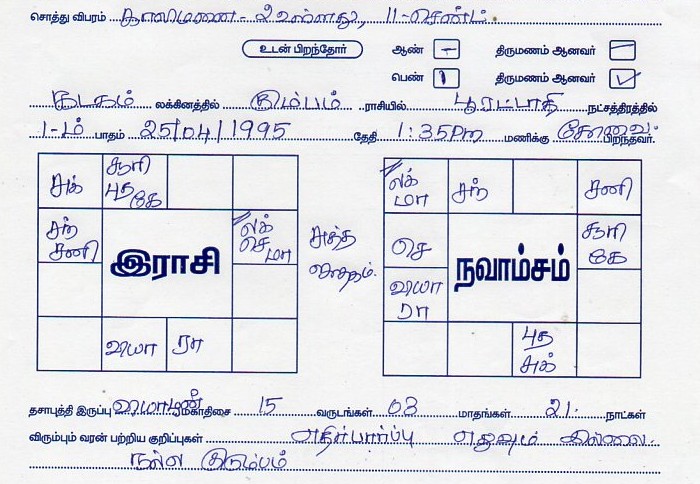 சொத்து விபரம் காலிமனை - 2 உள்ளது, 11-செண்ட்
உடன் பிறந்தோர் ஆண் - திருமணம் ஆனவர் -
பெண் 1 திருமணம் ஆனவர் ✓
கடகம் லக்கினத்தில் கும்பம் ராசியில் பூரட்டாதி நட்சத்திரத்தில்
1-ம் பாதம் 25/04/1995 தேதி 1:35Pm மணிக்கு கோவை பிறந்தவர்.
சுக் சூரி புத கே
சந் சனி
லக் செ மா
இராசி
வியா ரா
சுத்த ஜாதகம்.
லக் மா சந் சனி
செ சூரி கே
நவாம்சம்
வியா ரா
புத சுக்
தசாபுத்தி இருப்பு வியாழன் மகாதிசை 15 வருடங்கள் 03 மாதங்கள் 21. நாட்கள்
விரும்பும் வரன் பற்றிய குறிப்புகள் எதிர்பார்ப்பு எதுவும் இல்லை.
நல்ல குடும்பம்